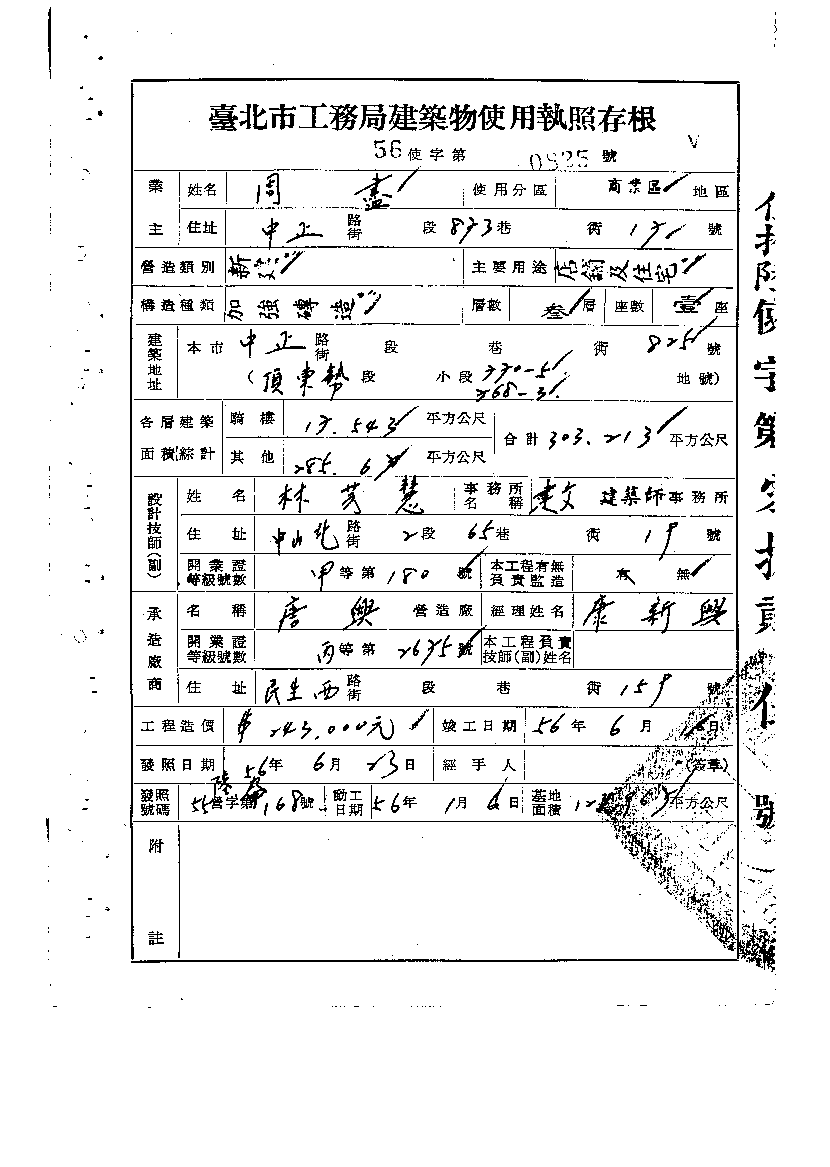 臺北市工務局建築物使用執照存根
56使字第0925號
業主 姓名 周 盡 使用分區 商業區 地區
住址 中正 路街 段 873巷 衖 號
營造類別 新建 主要用途 店鋪及住宅
構造種類 加強磚造 層數 叁層 座數 壹座
建築地址 本市 中正 路街 段 巷 衖 825 號
(頂東勢 段 小段 330-5 268-3 地號)
各層建築面積綜計 騎樓 17.543 平方公尺 合計 303.213 平方公尺
其他 285.67 平方公尺
設計技師(副) 姓名 林芳慧 事務所名稱 建築師事務所
住址 中山北 路街 2段 65巷 衖 19 號
開業證等級號數 甲等第180號 本工程有無負責監造 有 無
承造廠商 名稱 唐興 營造廠 經理姓名 康新興
開業證等級號數 丙等第2635號 本工程負責技師(副)姓名
住址 民生西 路街 段 巷 衖 159 號
工程造價 243,000元 竣工日期 56年 6月 日
發照日期 56年 6月 23日 經手人 (簽章)
發照號碼 55營字第168號 動工日期 56年 1月 6日 基地面積 平方公尺
附註